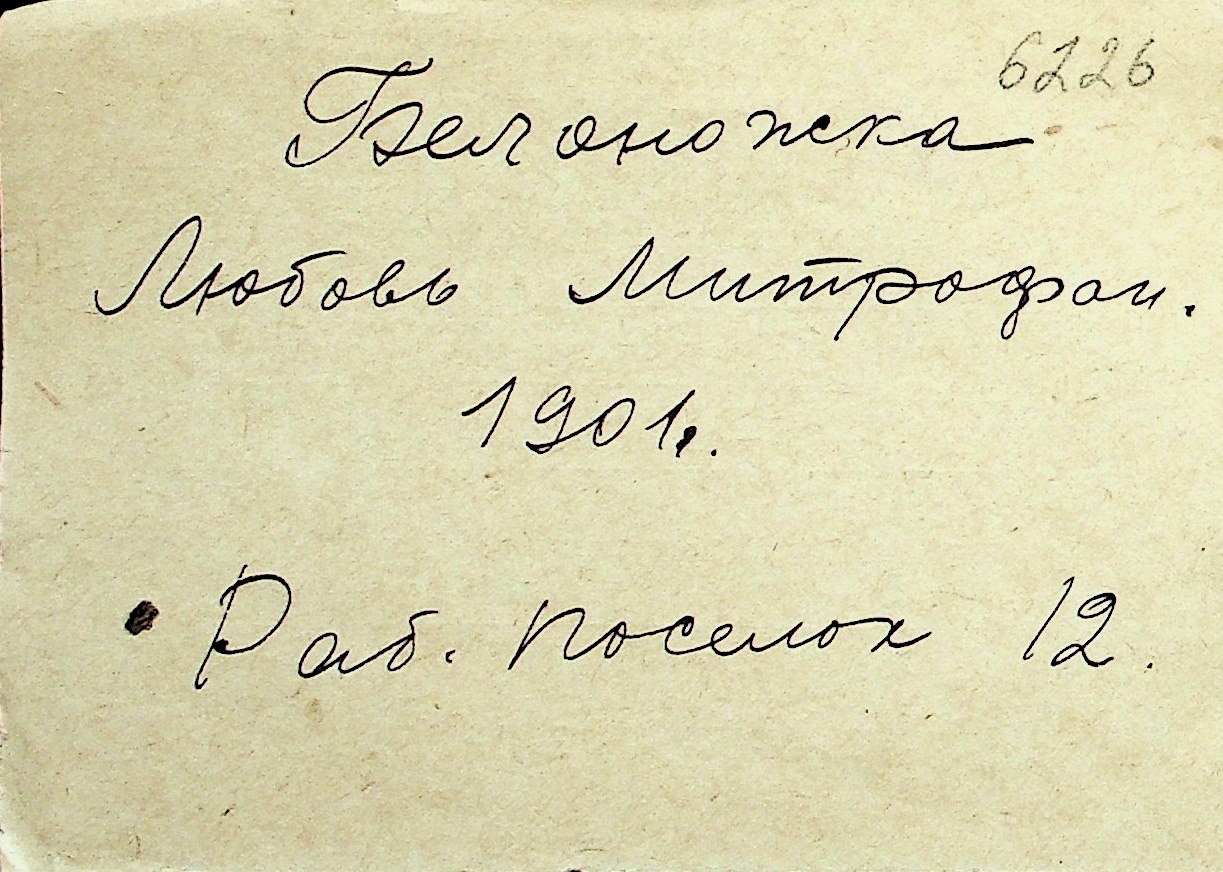 6226
Белоножка
Любовь Митрофан.
1901.
Раб. поселок 12.